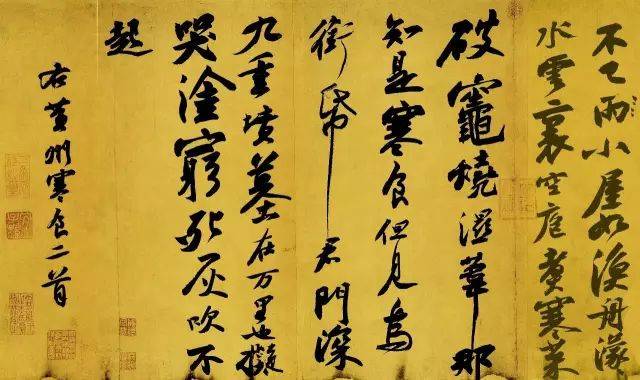 不已雨小屋如漁舟濛
水雲裏空庖煮寒菜
破竈燒濕葦那
知是寒食但見烏
銜帋君門深
九重墳墓在万里也擬
哭塗窮死灰吹不
起
右黄州寒食二首